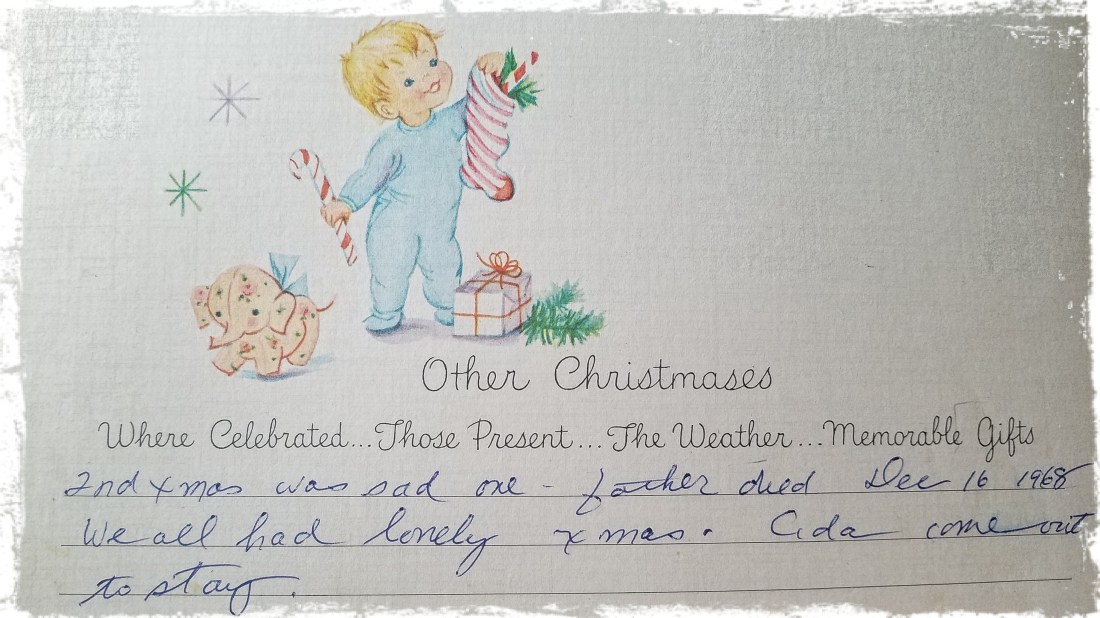 Other Christmases
Where Celebrated...Those Present...The Weather...Memorable Gifts
2nd xmas was sad one - father died Dec 16 1968
We all had lonely xmas. Ada come out
to stay.